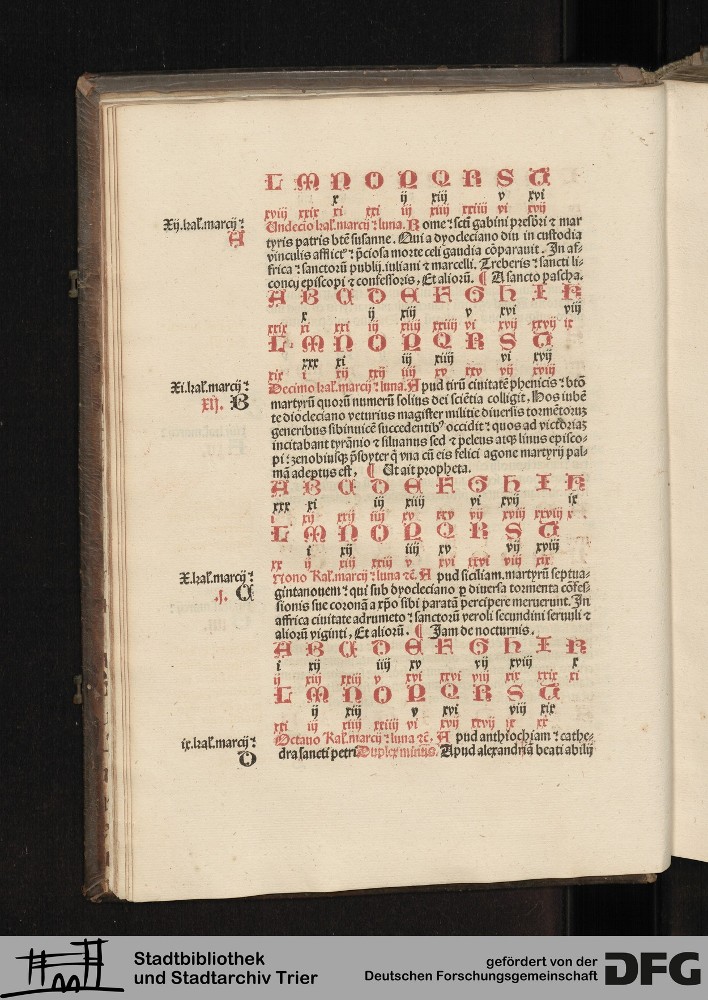 L M N O P Q R S T
x ij xiij v xvi
xviij xxix xi xxi iij xiiij xxiiij vi xvij
Xij.kal'.marcij ⁊
A
Undecio kal'.marcij ⁊ luna. Rome ⁊ scti gabini presbri ⁊ mar
tyris patris bte susanne. Qui a dyocleciano diu in custodia
vinculis afflict' ⁊ p̄ciosa morte celi gaudia cōparauit. In af-
frica ⁊ sanctorū publij.iuliani ⁊ marcelli. Treberis ⁊ sancti li-
concij episcopi ⁊ confessoris, Et aliorū. ¶ A sancto pascha.
A B C D E F G H I K
x ij xiij v xvi viij
xxix xi xxi iij xiiij xxiiij vi xvij xxvij ix
L M N O P Q R S T
xxx xi iij xiiij vi xvij
xix i xij xxij iiij xv xxv vij xviij
Xi.kal'.marcij ⁊
xij. B
Decimo kal'.marcij ⁊ luna. Apud tirū ciuitatē phenicis ⁊ btō
martyrū quorū numerū solius dei sciētia colligit, Hos iubē
te diocleciano veturius magister militie diuersis tormētoruꝫ
generibus sibinuicē succedentib' occidit ⁊ quos ad victoriaꝫ
incitabant tyrānio ⁊ siluanus sed ⁊ peleus atqꝫ linus episco-
pi ⁊ zenobiusqꝫ p̄sbyter q̄ vna cū eis felici agone martyrij pal-
mā adeptus est, ¶ Ut ait propheta.
A B C D E F G H I K
xxx xi iij xiiij vi xvij ix
i xij xxij iiij xv xxv vij xviij xxviij x
L M N O P Q R S T
i xij iiij xv vij xviij
xx ij xiij xxiij v xvi xxvi viij xix
X.kal'.marcij ⁊
.j. C
Nono Kal'.marcij ⁊ luna ⁊c̄. Apud siciliam.martyrū septua-
gintanouem ⁊ qui sub dyocleciano p diuersa tormenta cōfes-
sionis sue coronā a xp̄o sibi paratā percipere meruerunt. In
affrica ciuitate adrumeto ⁊ sanctorū veroli secundini seruuli ⁊
aliorū viginti, Et aliorū. ¶ Jam de nocturnis.
A B C D E F G H I K
i xij iiij xv vij xviij x
ij xiij xxiij v xvi xxvi viij xix xxix xi
L M N O P Q R S T
ij xiij v xvi viij xix
xxi iij xiiij xxiiij vi xvij xxvij ix xx
ix.kal'.marcij ⁊
D
Octauo Kal'.marcij ⁊ luna ⁊c̄. Apud anthiochiam ⁊ cathe-
dra sancti petri Duplex minus. Apud alexandriā beati abilij
Stadtbibliothek
und Stadtarchiv Trier
gefördert von der
Deutschen Forschungsgemeinschaft
DFG